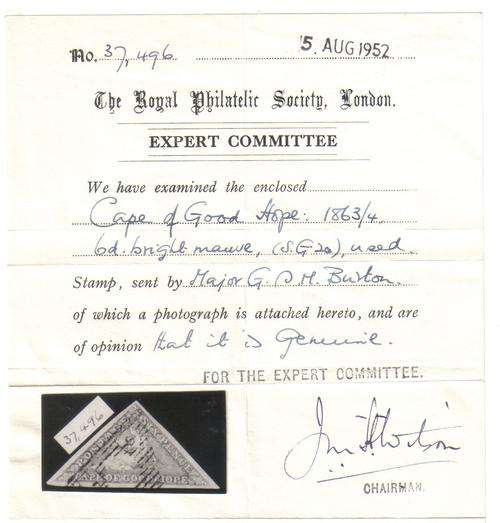 No. 37,496. 5 AUG 1952
The Royal Philatelic Society, London.
EXPERT COMMITTEE
We have examined the enclosed
Cape of Good Hope: 1863/4,
6d. bright mauve, (S.G. 20), used.
Stamp, sent by Major G. D. M. Burton.
of which a photograph is attached hereto, and are
of opinion that it is Genuine.
FOR THE EXPERT COMMITTEE.
37,496
POSTAGE
SIX PENCE
CAPE OF GOOD HOPE
CHAIRMAN.